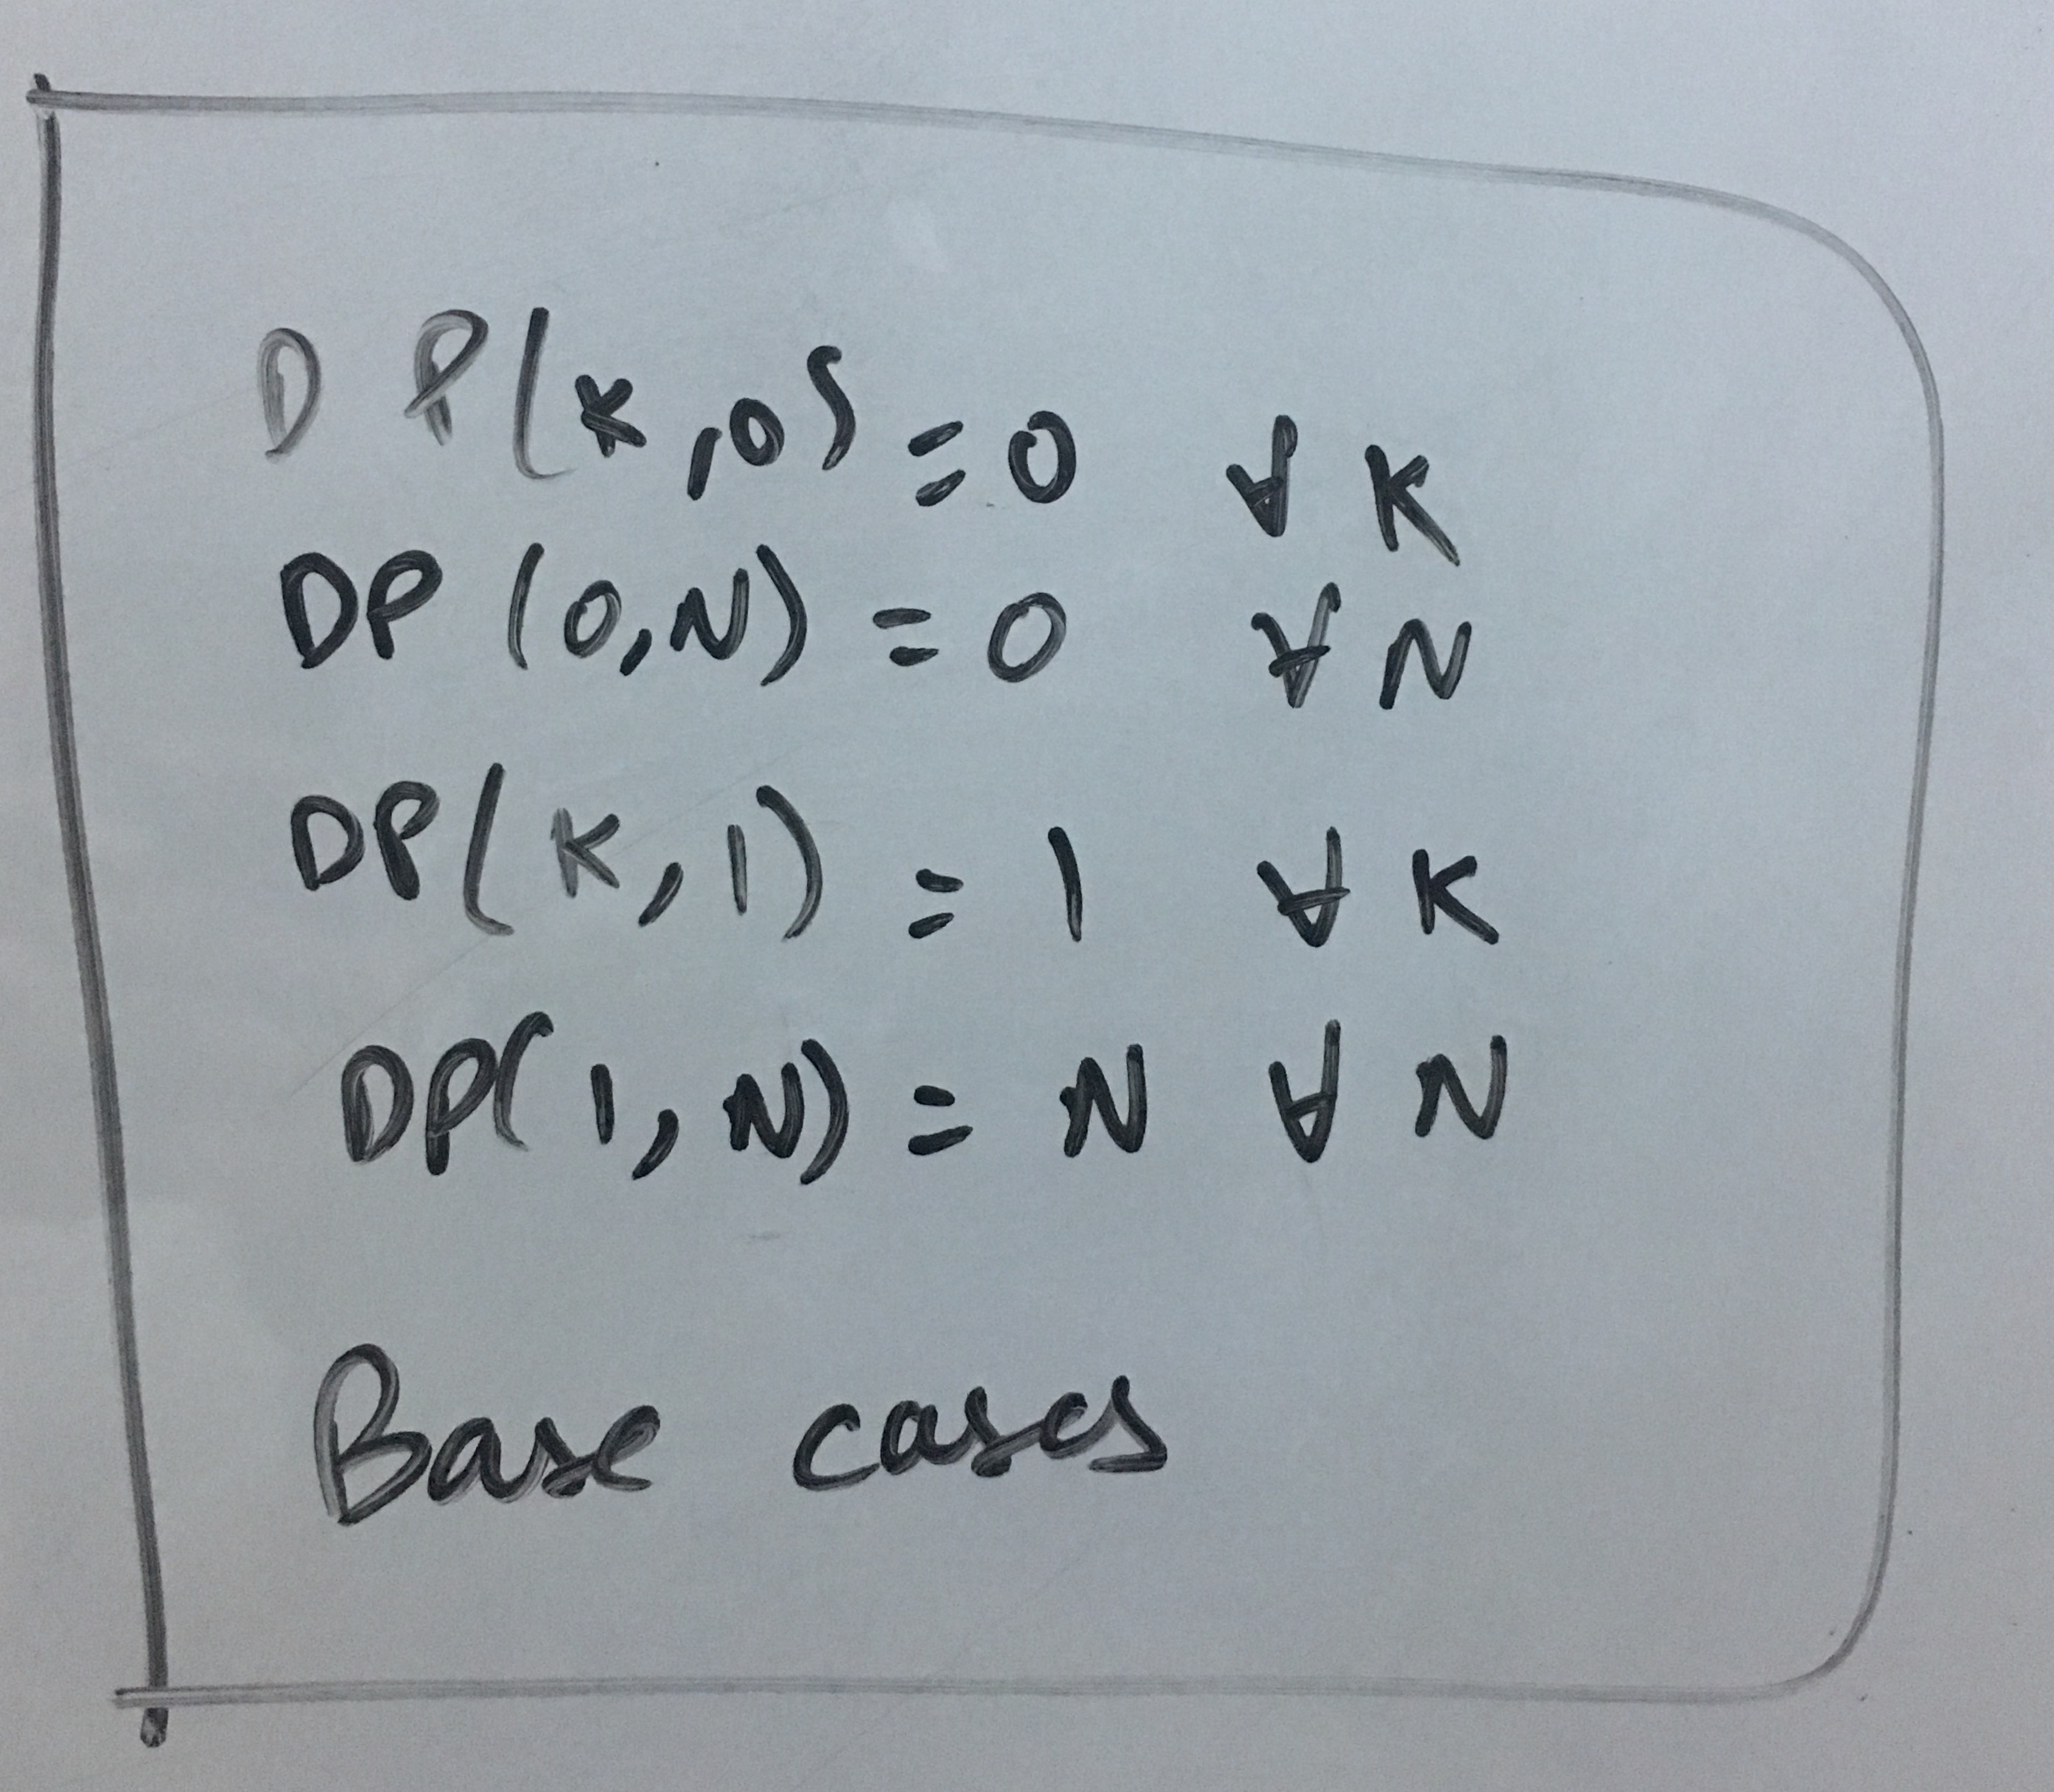 DP(K,0) = 0 ∀ K
DP(0,N) = 0 ∀ N
DP(K,1) = 1 ∀ K
DP(1,N) = N ∀ N
Base cases